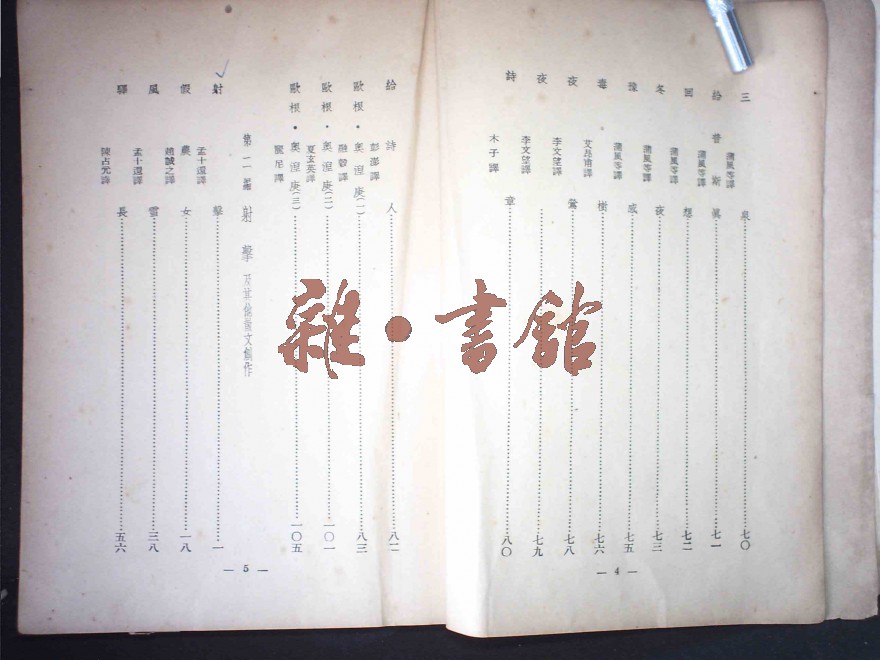 三泉……七〇
蒲風等譯
給普斯眞……七一
蒲風等譯
回想……七二
蒲風等譯
冬夜……七三
蒲風等譯
豫感……七五
蒲風等譯
毒樹……七六
夜鶯……七八
李文望譯
夜……七九
李文望譯
詩章……八〇
木子譯
— 4 —
給詩人……八二
彭澎譯
歐根・奧涅庚(一)……八三
歐根・奧涅庚(二)……一〇一
夏玄英譯
歐根・奧涅庚(三)……一〇五
麗尼譯
第二編 射擊及其他散文創作
射擊……一
孟十還譯
假農女……一八
趙誠之譯
風雪……三八
孟十還譯
驛長……五六
陳占元譯
— 5 —
雜・書館